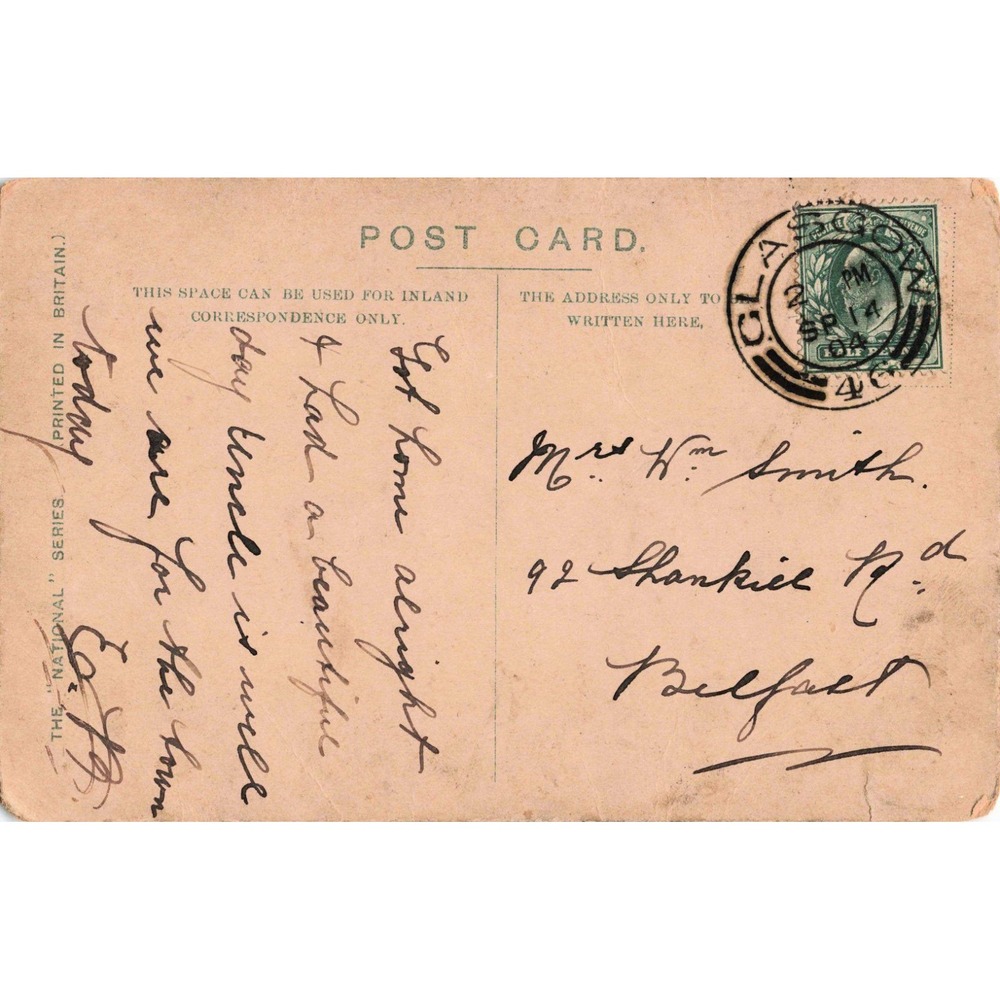 POST CARD.
THIS SPACE CAN BE USED FOR INLAND
CORRESPONDENCE ONLY.
THE ADDRESS ONLY TO
WRITTEN HERE,
GLASGOW
2 PM
SP 14
04
46
Got home alright
& had a beautiful
day Uncle is well
we are for the town
today
Mrs Wm Smith.
92 Shankill Rd.
Belfast
THE "NATIONAL" SERIES
(PRINTED IN BRITAIN.)